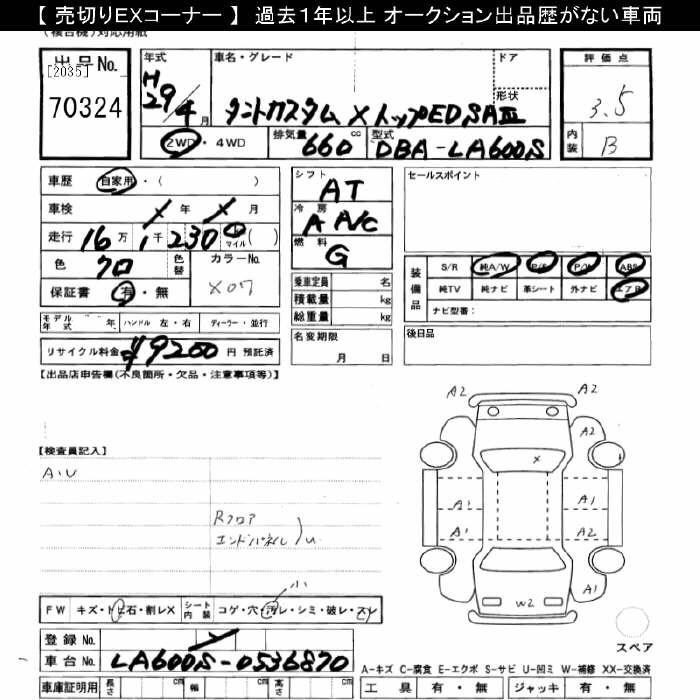 【 売切りEXコーナー 】 過去１年以上 オークション出品歴がない車両
(複合機)対応用紙
出品No.
[2035]
70324
年式
H29/4月
車名・グレード
タントカスタム X トップED SAⅢ
ドア
形状
2WD・4WD
排気量 660 cc
型式 DBA-LA600S
評価点
3.5
内装 B
車歴 自家用・( )
車検 年 月
走行 16万 1千 230 km マイル ( )
色 クロ
色替
カラーNo. X07
保証書 有・無
シフト AT
冷房 A A/C
燃料 G
乗車定員 名
積載量 kg
総重量 kg
名変期限
月 日
セールスポイント
装備品
S/R 純A/W P/S P/W ABS
純TV 純ナビ 革シート 外ナビ エアB
ナビ型番:
後日品
モデル年式 年 ハンドル 左・右 ディーラー・並行
リサイクル料金 ¥9200 円 預託済
【出品店申告欄(不良箇所・欠品・注意事項等)】
【検査員記入】
A.U
Rフロア
エンドパネル U
小
FW キズ・トビ石・割レX シート内装 コゲ・穴・汚レ・シミ・破レ・スレ
登録 No.
車台 No. LA600S-0536870
車庫証明用 長さ cm 幅 cm 高さ cm
A2 A2
A2 A2
X
A1 A1
A1 A2
A1
W2
スペア
A-キズ C-腐食 E-エクボ S-サビ U-凹ミ W-補修 XX-交換済
工具 有・無 ジャッキ 有・無